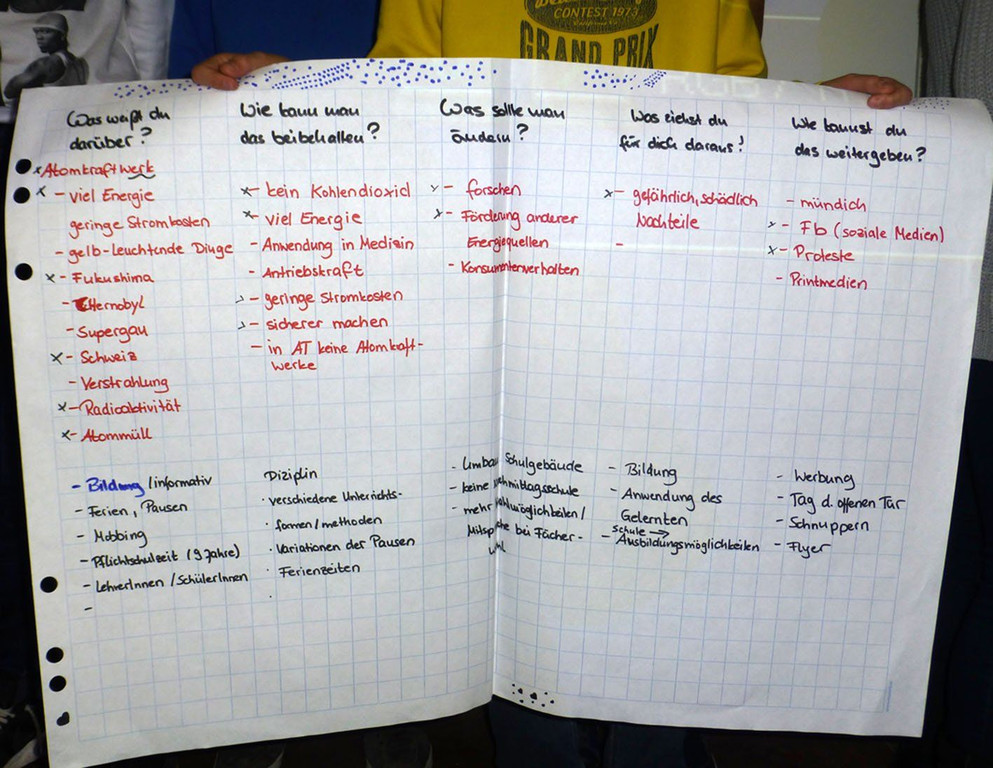 CONTEST 1973
GRAND PRIX
Was weißt du
darüber?
*Atomkraftwerk
x - viel Energie
geringe Stromkosten
- gelb-leuchtende Dinge
x - Fukushima
- Tschernobyl
- Supergau
x - Schweiz
- Verstrahlung
x - Radioaktivität
x - Atommüll
- Bildung / informativ
- Ferien, Pausen
- Mobbing
- Pflichtschulzeit (9 Jahre)
- LehrerInnen / SchülerInnen
-
Wie kann man
das beibehalten?
x - kein Kohlendioxid
x - viel Energie
- Anwendung in Medizin
- Antriebskraft
x - geringe Stromkosten
x - sicherer machen
- in AT keine Atomkraft-
werke
Diziplin
· verschiedene Unterrichts-
· formen/methoden
· Variationen der Pausen
· Ferienzeiten
·
Was sollte man
ändern?
x - forschen
x - Förderung anderer
Energiequellen
- Konsumentenverhalten
- Umbau Schulgebäude
- keine
- mehr
bei Fächer-
Was ziehst du
für dich daraus!
x - gefährlich, schädlich
Nachteile
-
- Bildung
- Anwendung des
Gelernten
Schule →
- Ausbildungsmöglichkeiten
Wie kannst du
das weitergeben?
- mündich
x - Fb (soziale Medien)
x - Proteste
- Printmedien
- Werbung
- Tag d. offenen Tür
- Schnuppern
- Flyer